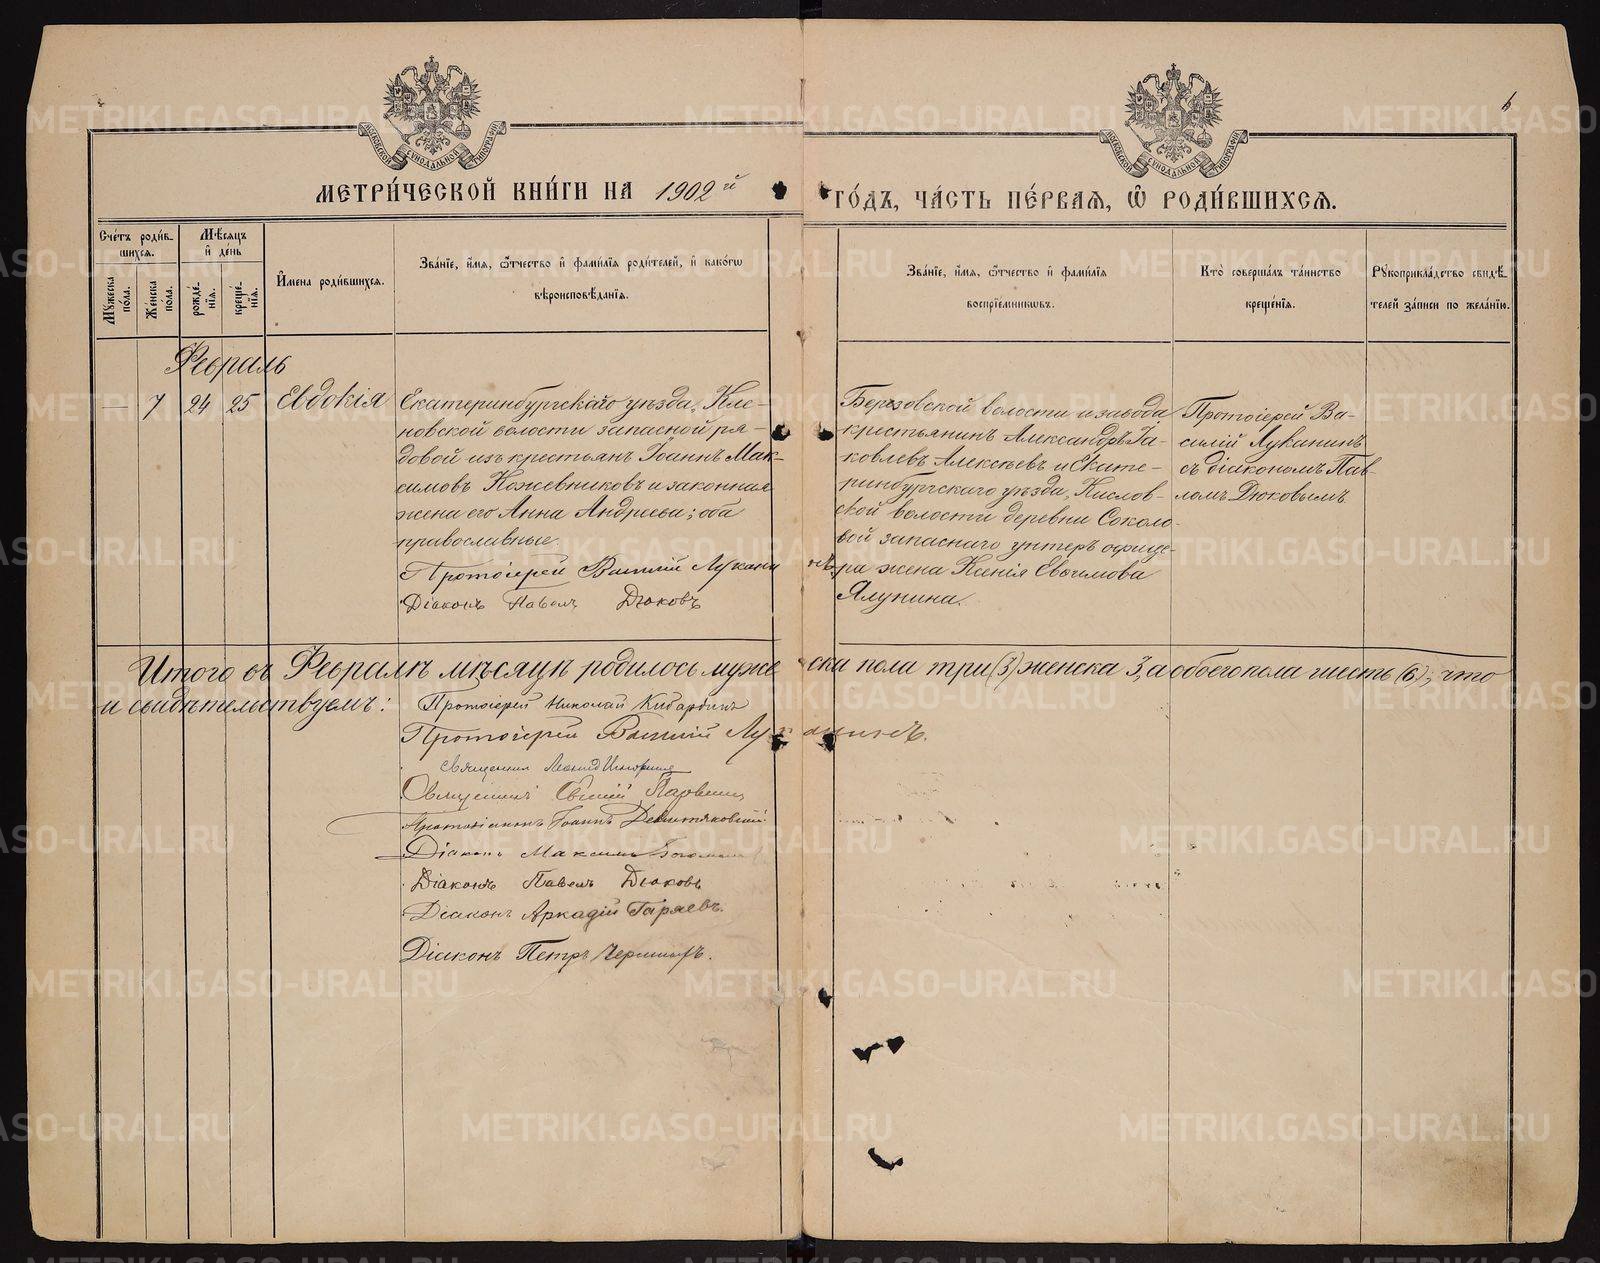 МЕТРИ́ЧЕСКОЙ КНИ́ГИ НА 1902й ГО́ДЪ, ЧА́СТЬ ПЕ́РВАѦ, Ѡ҆ РОДИ́ВШИХСѦ.
МОСКОВСКОЙ СѴНОДАЛЬНОЙ ТИПОГРАФІИ
МОСКОВСКОЙ СѴНОДАЛЬНОЙ ТИПОГРАФІИ
Сче́тъ роди́в-
шихсѧ.
Мꙋ́жеска по́ла.
Же́нска по́ла.
Мѣ́сѧцъ и҆ де́нь
рожде́-нїѧ.
креще́-нїѧ.
И҆мена̀ роди́вшихсѧ.
Зва́нїе, и҆́мѧ, ѻ҆́тчество и҆ фами́лїѧ роди́телей, и҆ како́гѡ
вѣроисповѣ́данїѧ.
Зва́нїе, и҆́мѧ, ѻ҆́тчество и҆ фами́лїѧ
воспрїе́мникѡвъ.
Кто̀ соверша́лъ та́инство
креще́нїѧ.
Рꙋкоприкла́дство свидѣ́-
телей за́писи по жела́нїю.
Февраль
— 7 24 25 Евдокія
Екатеринбургскаго уѣзда, Кле-
новской волости запасной ря-
довой изъ крестьянъ Іоаннъ Мак-
симовъ Кожевниковъ и законная
жена его Анна Андреева; оба
православные.
Протоіерей Василій Луканинъ.
Діаконъ Павелъ Дюковъ
Березовской волости и завода
крестьянинъ Александръ Іа-
ковлевъ Алексѣевъ и Екате-
ринбургскаго уѣзда, Кислов-
ской волости деревни Соколо-
вой запаснаго унтеръ офице-
ра жена Ксенія Евфимова
Ялунина.
Протоіерей Ва-
силій Луканинъ
съ діакономъ Пав-
ломъ Дюковымъ
Итого въ Февралѣ мѣсяцѣ родилось мужеска пола три (3), женска 3, а обоего пола шесть (6); что
и свидѣтельствуемъ:
Протоіерей Николай Кибардинъ
Протоіерей Василій Луканинъ.
Священник Леонид
Священникъ
Протодіаконъ Іоаннъ Девятяковскій
Діаконъ Максимъ
Діаконъ Павелъ Дюковъ
Діаконъ Аркадій Гаряевъ.
Діаконъ Петръ
METRIKI.GASO-URAL.RU